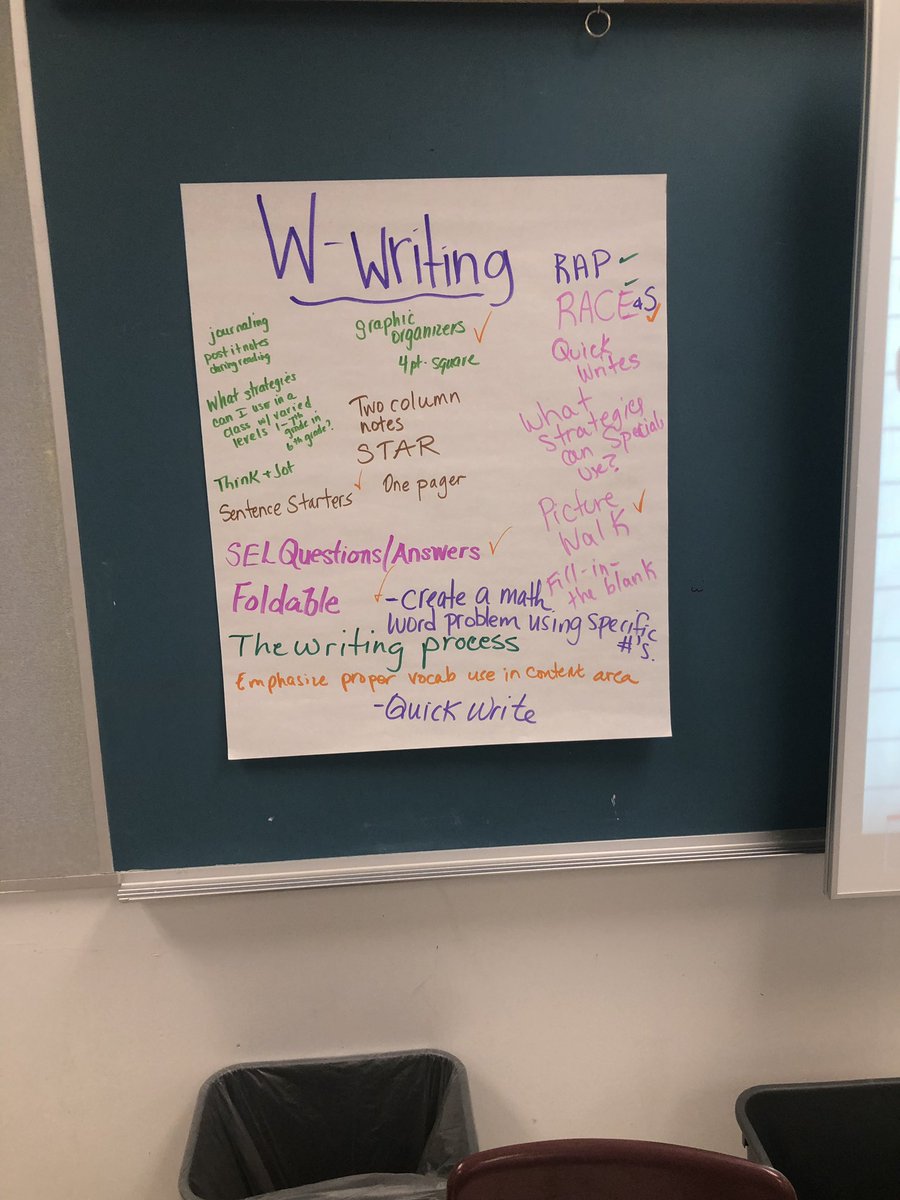 W-Writing
journaling
post it notes
during reading
What strategies
can I use in a
class w/ varied
levels 1-7th
grade in
6th grade?
Think + Jot
Sentence Starters
graphic
organizers
4pt. square
Two column
notes
STAR
One pager
RAP
RACE&S
Quick
Writes
What
strategies
can Specials
use?
Picture
Walk
Fill-in-
the blank
SEL Questions/Answers
Foldable
-Create a math
word problem using specific
#'s.
The writing process
Emphasize proper vocab use in content area
-Quick Write